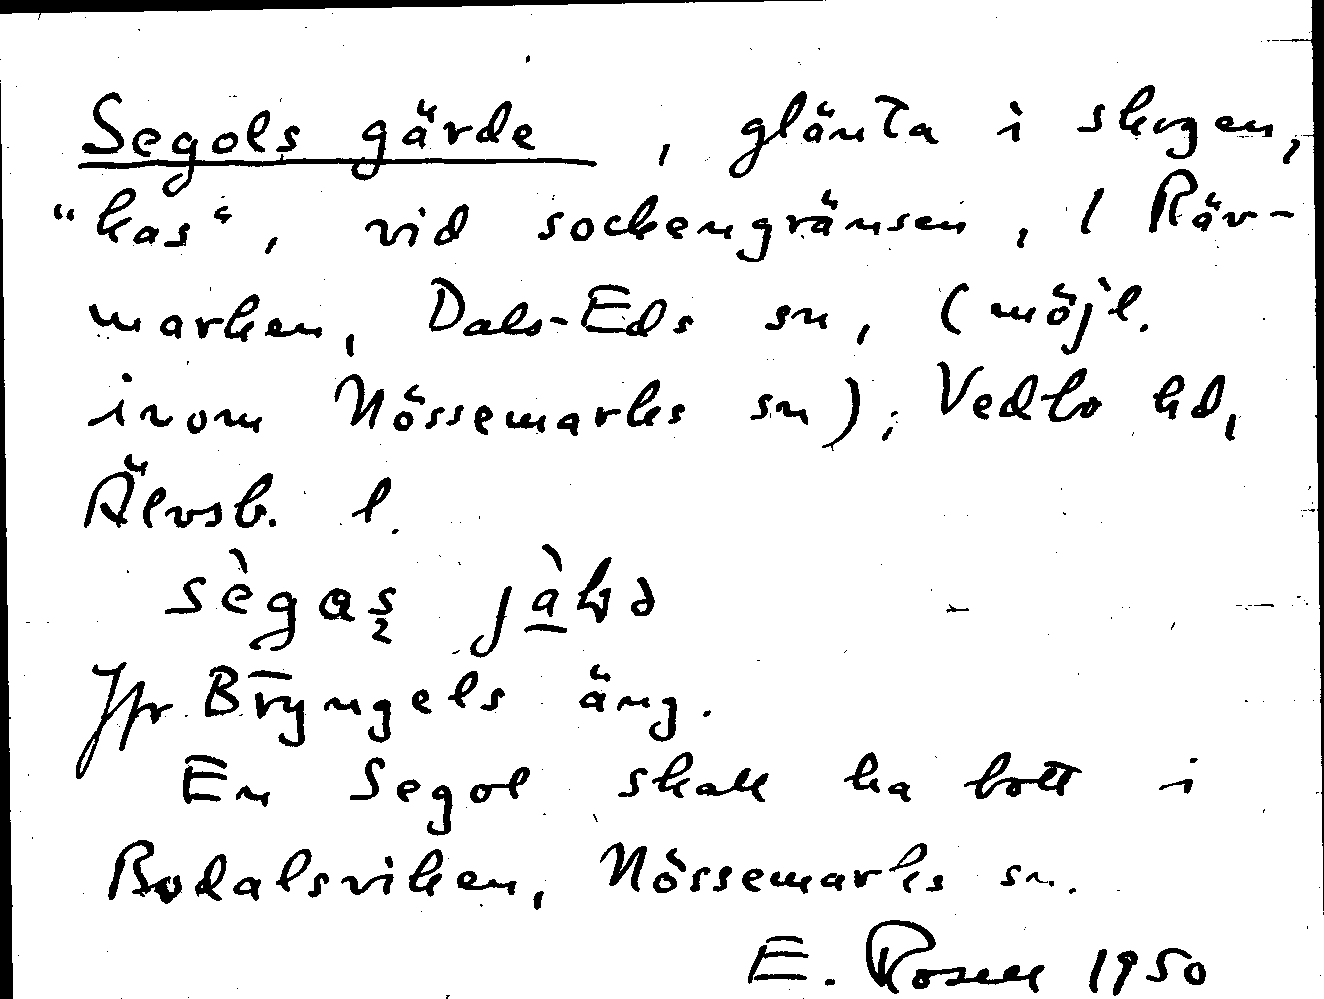 Segols gärde, glänta i skogen,
"kas", vid sockengränsen, i Räv-
marken, Dals-Eds sn, (möjl.
inom Nössemarks sn), Vedbo hd,
Älvsb. l.
sègaş
Jfr Bryngels äng.
En Segol skall ha bott i
Bodalsviken, Nössemarks sn.
E. Rosell 1950